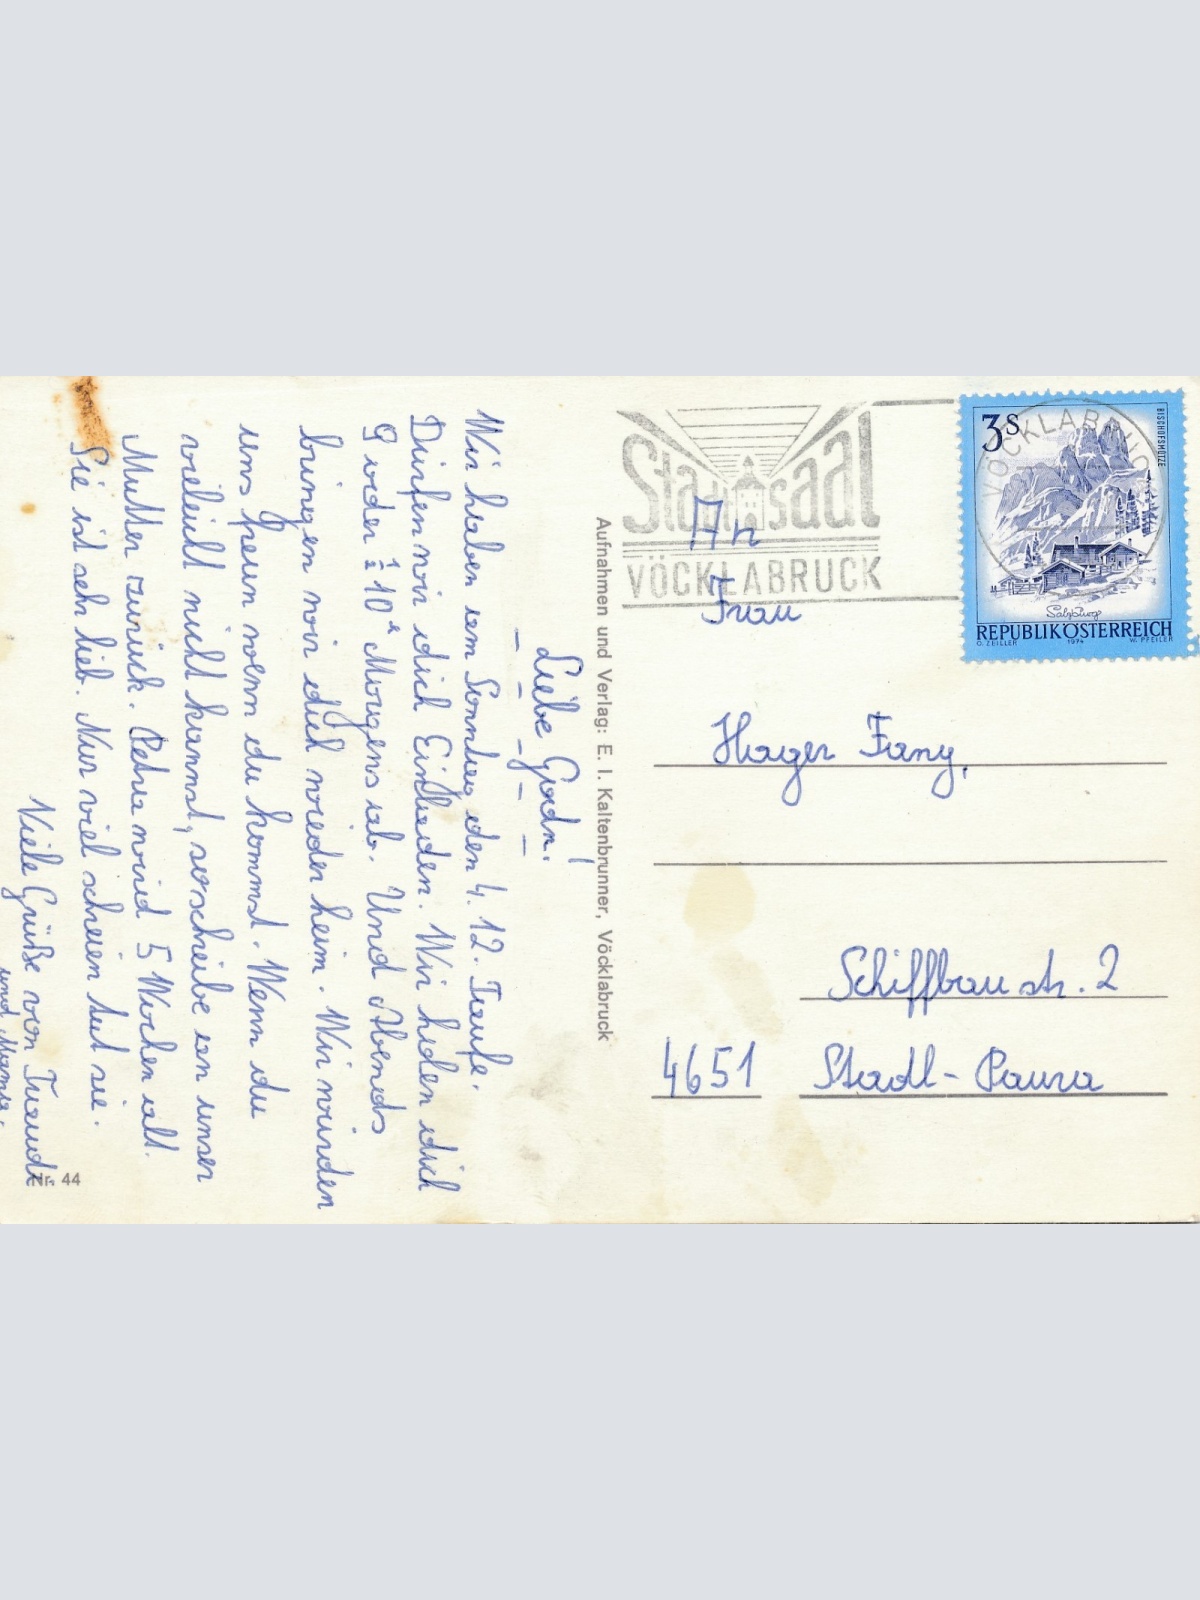 Liebe Godn!
Wir haben am Sonntag den 4. 12. Taufe.
Dürfen wir dich Einladen. Wir holen dich
9 oder ½ 10ʰ Morgens ab. Und Abends
bringen wir dich wieder heim. Wir würden
uns freun wenn du kommst. Wenn du
vieleicht nicht kannst, so schreibe an unser
Mutter zurück. Petra wird 5 Wochen alt.
Sie ist sehr lieb. Nur viel schreien tut sie.
Viele Grüße von Traudi
und Mama.
Nr. 44
Aufnahmen und Verlag: E. I. Kaltenbrunner, Vöcklabruck
Stadtsaal
VÖCKLABRUCK
VÖCKLABRUCK
3 S
BISCHOFSMÜTZE
Salzburg
REPUBLIK ÖSTERREICH
O. ZEILLER 1974 W. PFEILER
An
Frau
Hager Fany.
Schiffbaustr. 2
4651 Stadl-Paura